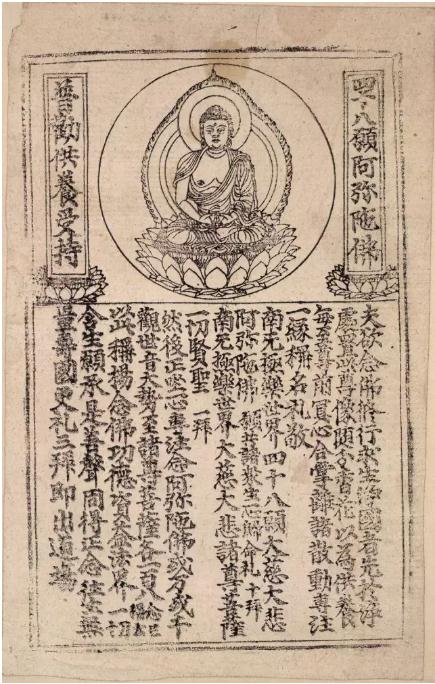 四十八願阿弥陁佛
普勸供養受持
夫欲念佛修行求生淨國者先於淨
處置此尊像隨分香花以為供養
每至尊前冥心合掌離諸散動專注
一緣稱名礼敬
南无極樂世界四十八願大慈大悲
阿弥陁佛 願共諸衆生一心歸命礼十拜
南无極樂世界大慈大悲諸尊菩薩
一切賢聖 一拜
然後正坐一心專注念阿弥陁佛或万或千
觀世音大勢至諸尊菩薩各一百八念已
以此稱揚念佛功德資益法界一切
含生願承是善聲同得正念往生無
量壽國更礼三拜即出道場